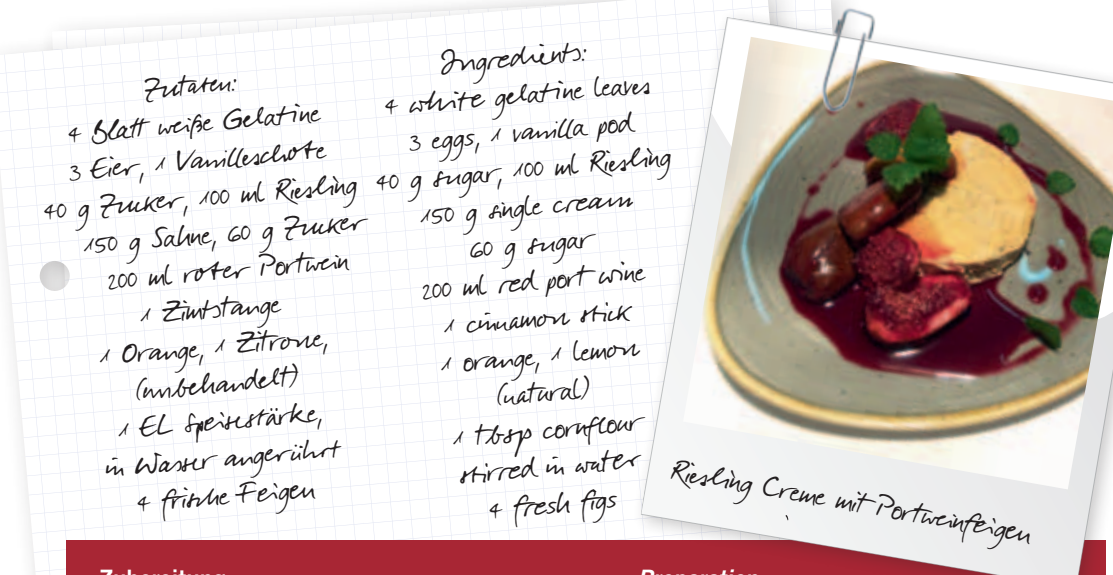 Zutaten:
4 Blatt weiße Gelatine
3 Eier, 1 Vanilleschote
40 g Zucker, 100 ml Riesling
150 g Sahne, 60 g Zucker
200 ml roter Portwein
1 Zimtstange
1 Orange, 1 Zitrone,
(unbehandelt)
1 EL Speisestärke,
in Wasser angerührt
4 frische Feigen
Ingredients:
4 white gelatine leaves
3 eggs, 1 vanilla pod
40 g sugar, 100 ml Riesling
150 g single cream
60 g sugar
200 ml red port wine
1 cinnamon stick
1 orange, 1 lemon
(natural)
1 tbsp cornflour
stirred in water
4 fresh figs
Riesling Creme mit Portweinfeigen
Zubereitung
Preparation